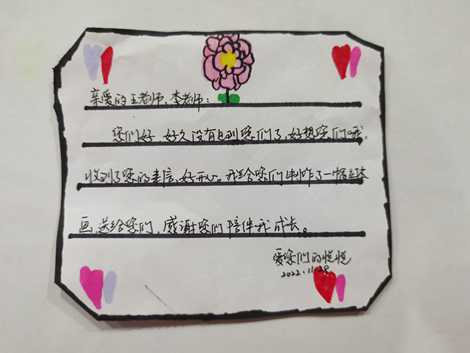 亲爱的王老师、李老师：
您们好，好久没有见到您们了，好想您们哦。
收到了您的来信，好开心。我给您们制作了一幅立体
画送给您们，感谢您们陪伴我成长。
爱您们的悦悦
2022.11.28